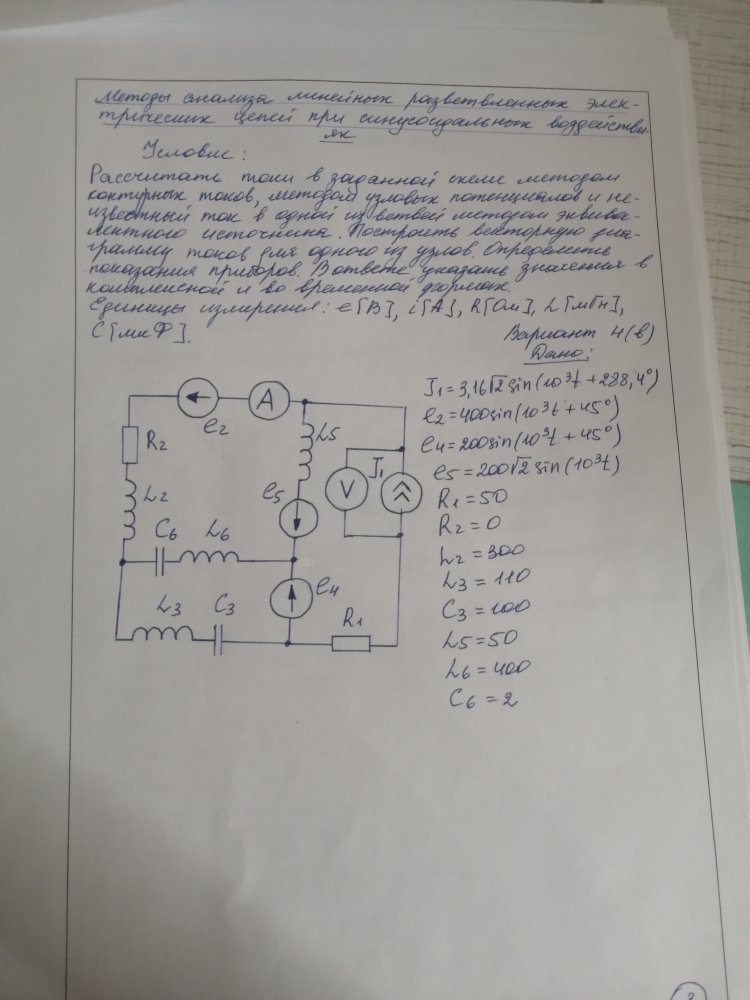 Методы анализа линейных разветвленных элек-
трических цепей при синусоидальных воздействи-
ях
Условие:
Рассчитать токи в заданной схеме методом
контурных токов, методом узловых потенциалов и не-
известный ток в одной из ветвей методом эквива-
лентного источника. Построить векторную диа-
грамму токов для одного из узлов. Определить
показания приборов. В ответе указать значения в
комплексной и во временной формах.
Единицы измерения: e[В], i[А], R[Ом], L[мГн],
C[мкФ].
Вариант 4(в)
Дано:
J₁=3,16√2 sin(10³t+288,4°)
e₂=400sin(10³t+45°)
e₄=200sin(10³t+45°)
e₅=200√2 sin(10³t)
R₁=50
R₂=0
L₂=300
L₃=110
C₃=100
L₅=50
L₆=400
C₆=2
e₂
A
R₂
L₅
L₂
e₅
V
J₁
C₆
L₆
e₄
L₃
C₃
R₁